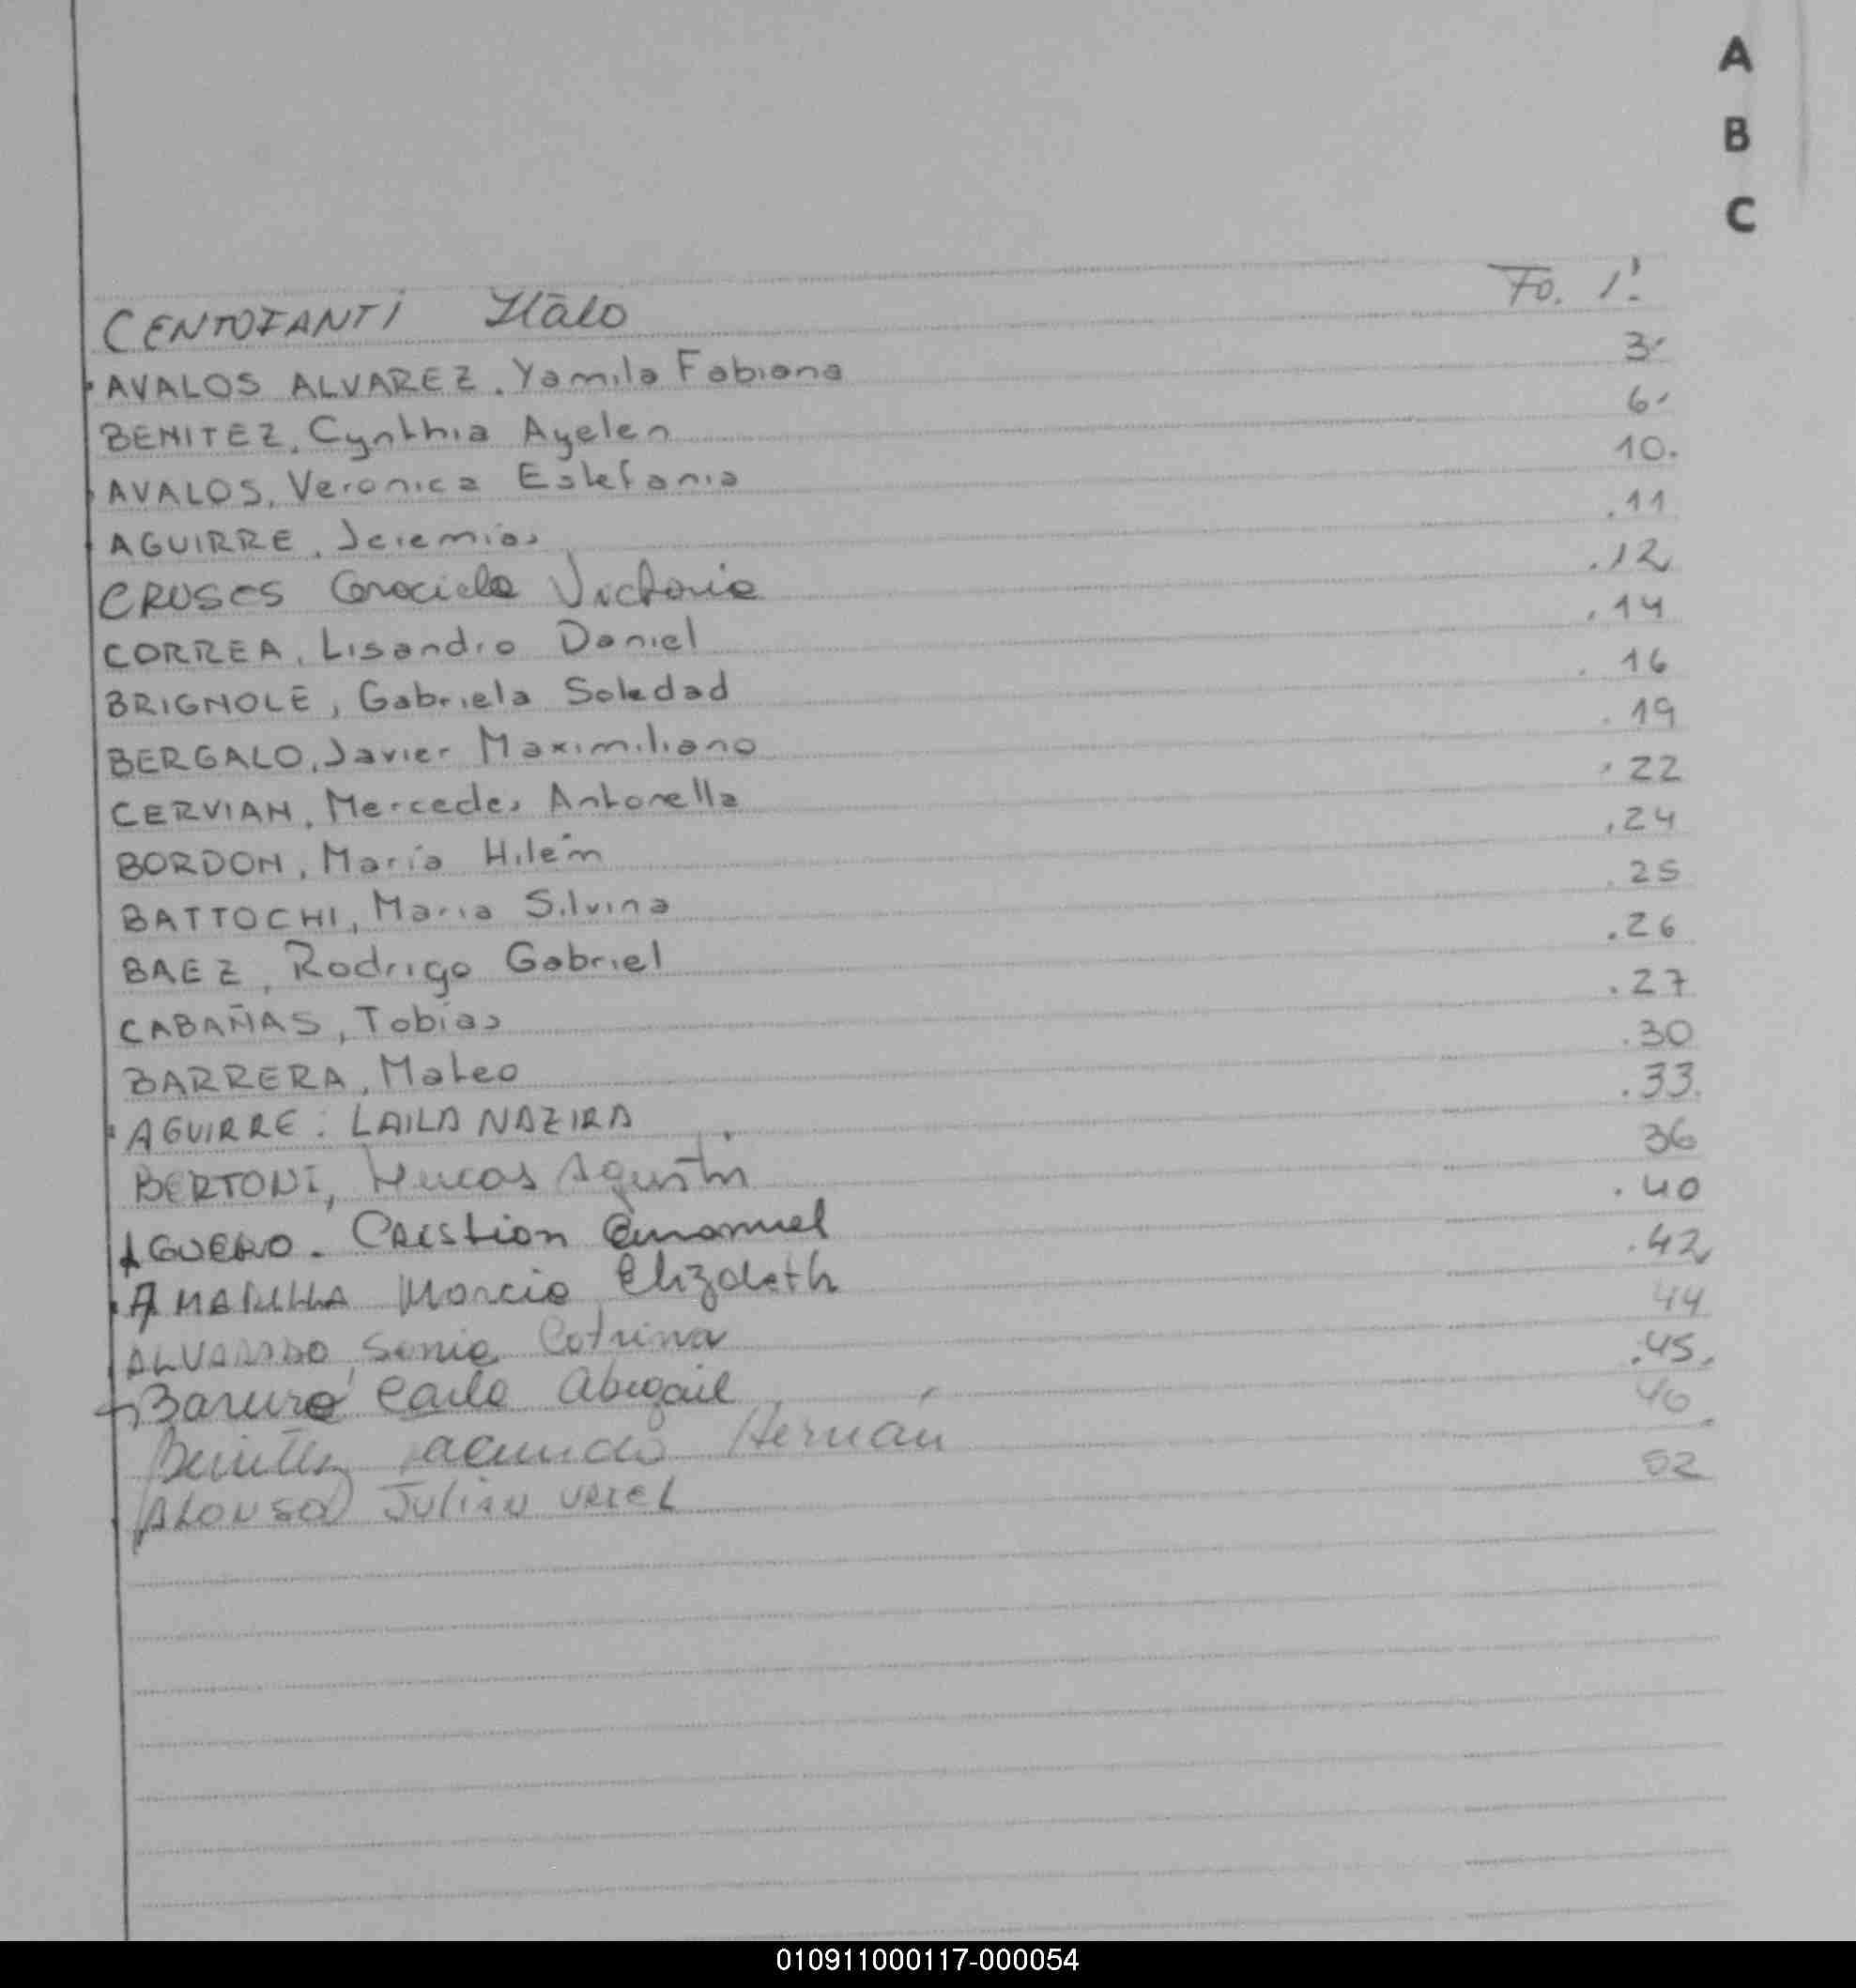 A
B
C
Fo. 1.
CENTOFANTI Itálo
AVALOS ALVAREZ. Yamila Fabiana 3
BENITEZ, Cynthia Ayelen 6
AVALOS, Veronica Estefania 10.
AGUIRRE, Jeremias .11
CRUSES Graciela Victoria .12
CORREA, Lisandro Daniel .14
BRIGNOLE, Gabriela Soledad . 16
BERGALO, Javier Maximiliano . 19
CERVIAN, Mercedes Antonella . 22
BORDON, María Hilén .24
BATTOCHI, Maria Silvina . 25
BAEZ, Rodrigo Gabriel .26
CABAÑAS, Tobías .27
BARRERA, Mateo .30
AGUIRRE: LAILA NAZIRA .33.
BERTONI, Lucas Agustin 36
AGUERO. Cristian Emanuel . 40
AMARILLA Marcia Elizabeth .42
ALVARADO Sonia Catrina 44
Carla Abigail .45.
Benitez Hernán
ALONSO Julian URIEL 52
010911000117-000054